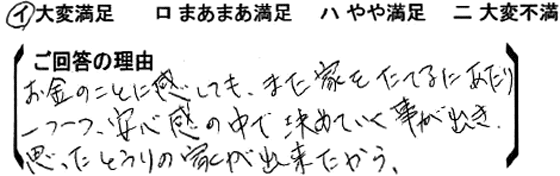 イ 大変満足　ロ まあまあ満足　ハ やや満足　ニ 大変不満
ご回答の理由
お金のことに感しても、また家をたてるにあたり
一つ一つ、安心感の中で決めていく事が出き、
思ったとうりの家が出来たから、